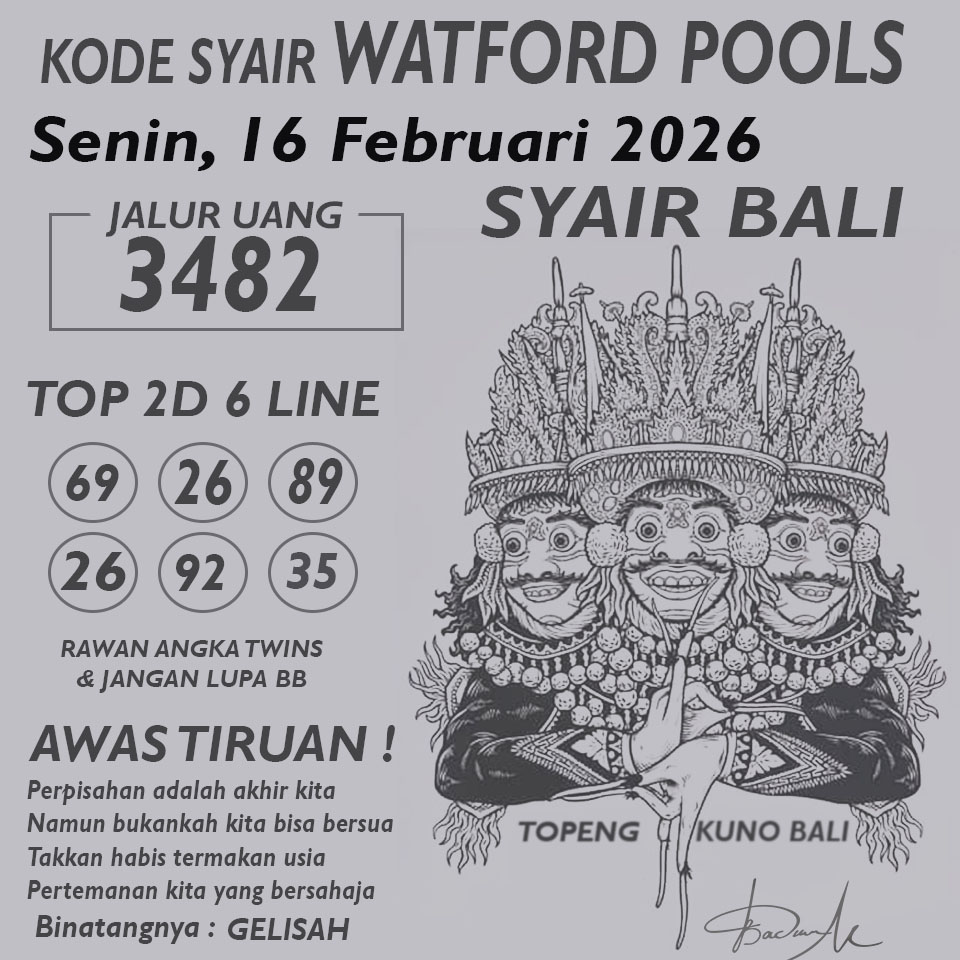 KODE SYAIR WATFORD POOLS
Senin, 16 Februari 2026
SYAIR BALI
JALUR UANG
3482
TOP 2D 6 LINE
69 26 89
26 92 35
RAWAN ANGKA TWINS
& JANGAN LUPA BB
AWAS TIRUAN !
Perpisahan adalah akhir kita
Namun bukankah kita bisa bersua
Takkan habis termakan usia
Pertemanan kita yang bersahaja
Binatangnya : GELISAH
TOPENG KUNO BALI